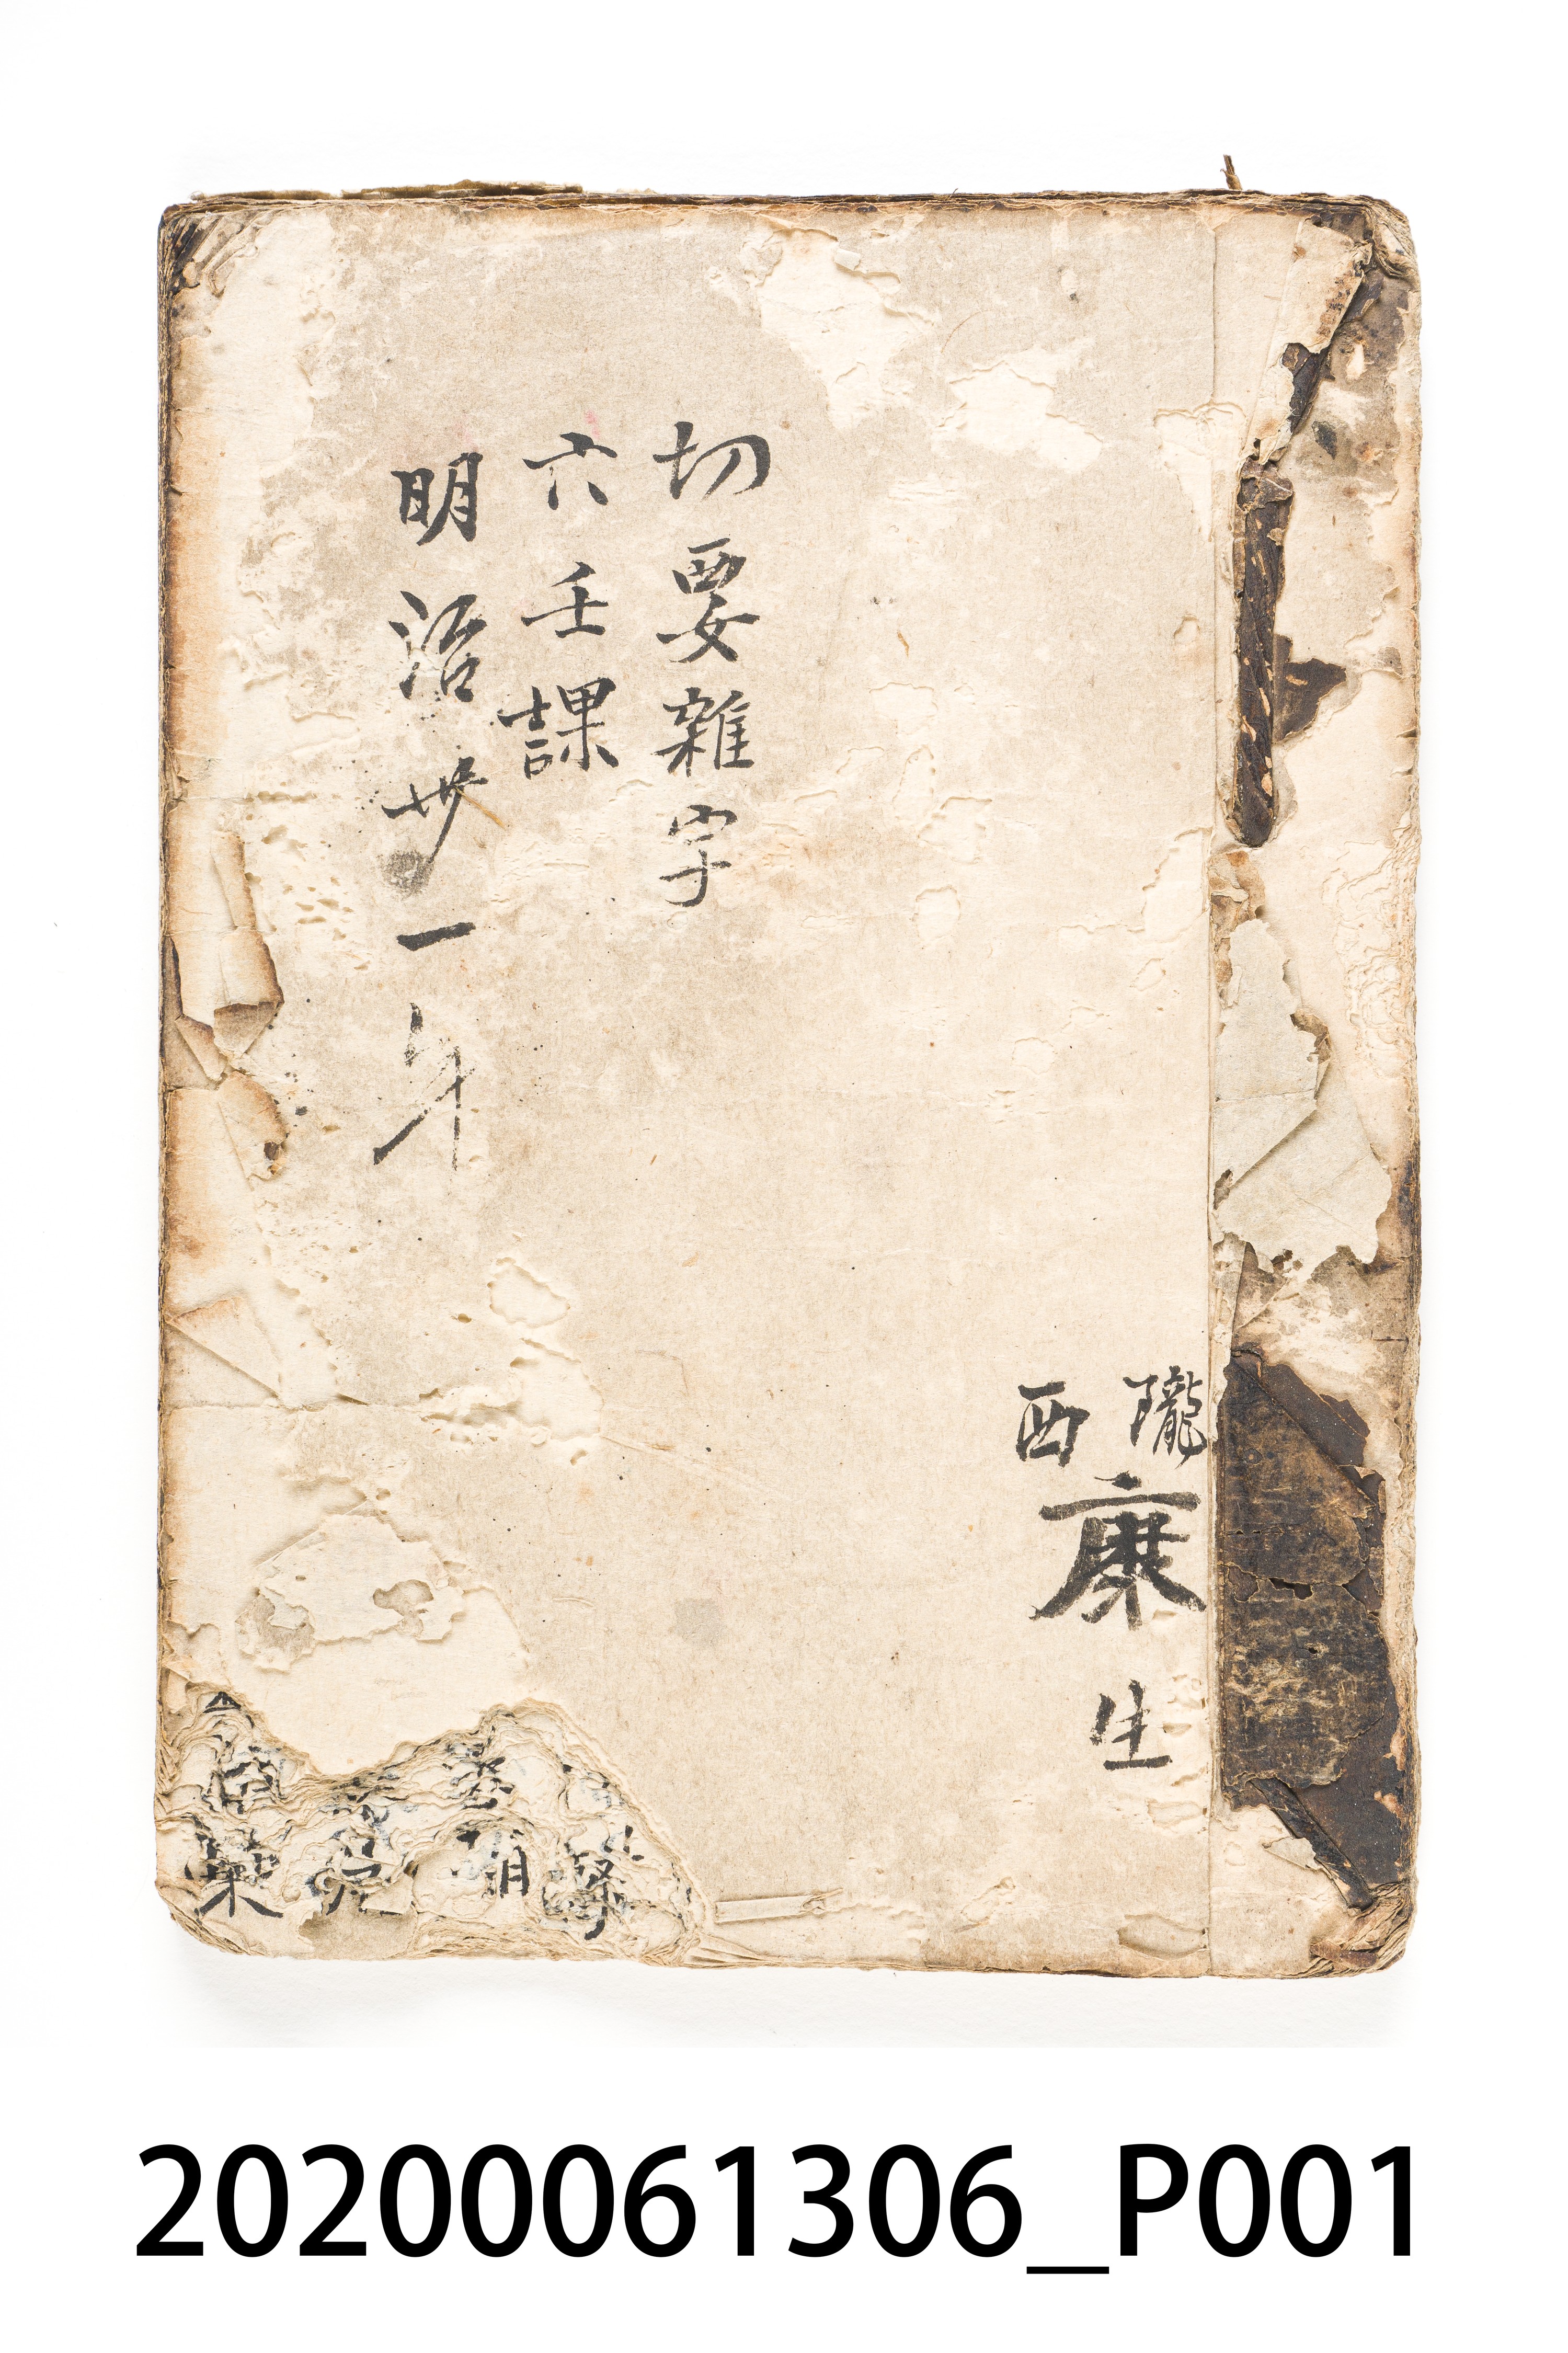 隴西
康生
切要雜字
六壬課
明治卅一年
20200061306_P001